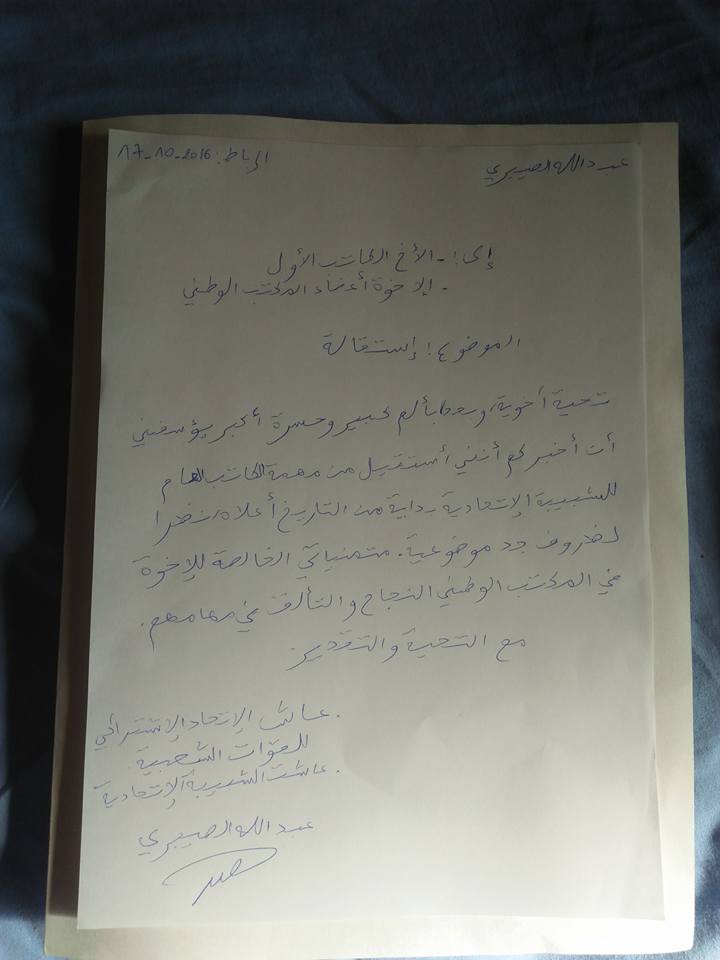 عبد الله الصيبري
الرباط: 17-10-2016
إلى: - الأخ الكاتب الأول
- الإخوة أعضاء المكتب الوطني
الموضوع: إستقالة
تحية أخوية، وبعد بألم كبير وحسرة أكبر يؤسفني
أن أخبركم أنني أستقيل من مهمة الكاتب العام
للشبيبة الإتحادية بداية من التاريخ أعلاه، نظرا
لظروف جد موضوعية. متمنياتي الخالصة للإخوة
في المكتب الوطني النجاح والتألق في مهامهم.
مع التحية والتقدير
. عاش الإتحاد الإشتراكي
للقوات الشعبية
. عاشت الشبيبة الإتحادية
عبد الله الصيبري